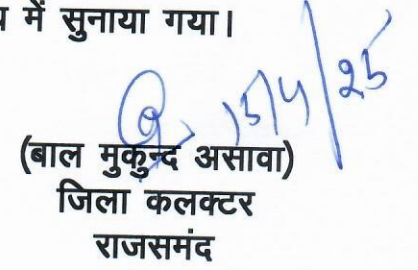 में सुनाया गया।
15/4/25
(बाल मुकुन्द असावा)
जिला कलक्टर
राजसमंद